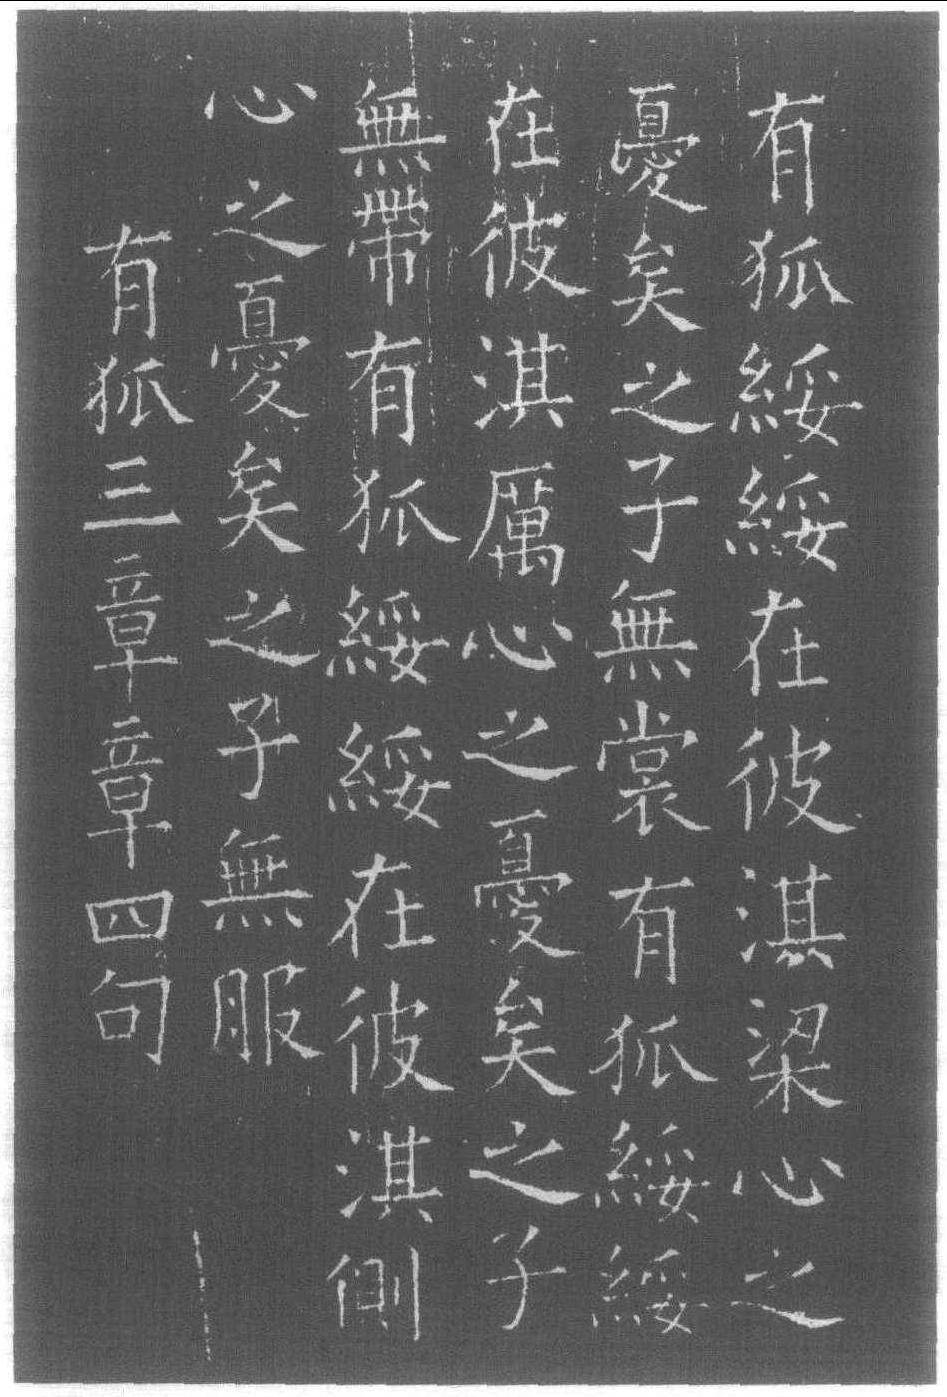 有狐綏綏在彼淇梁心之
憂矣之子無裳有狐綏綏
在彼淇厲心之憂矣之子
無帶有狐綏綏在彼淇側
心之憂矣之子無服
有狐三章章四句